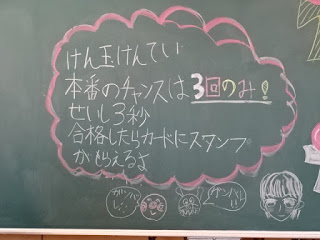 けん玉けんてい
本番のチャンスは3回のみ！
せいし3秒
合格したらカードにスタンプ
がもらえるよ
ガンバレ